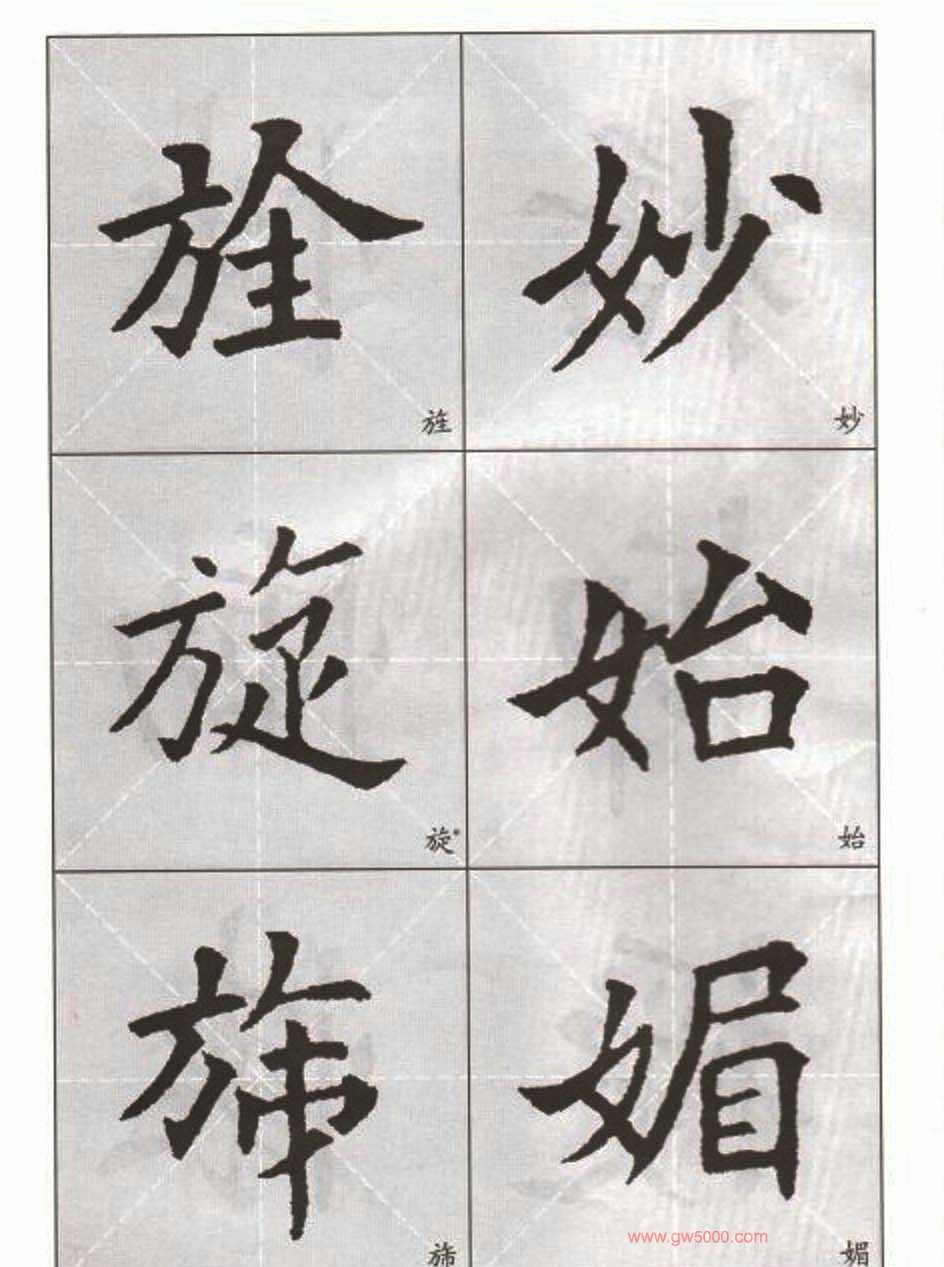 旌 妙
旌 妙
旋 始
旋* 始
旆 媚
www.gw5000.com
旆 媚